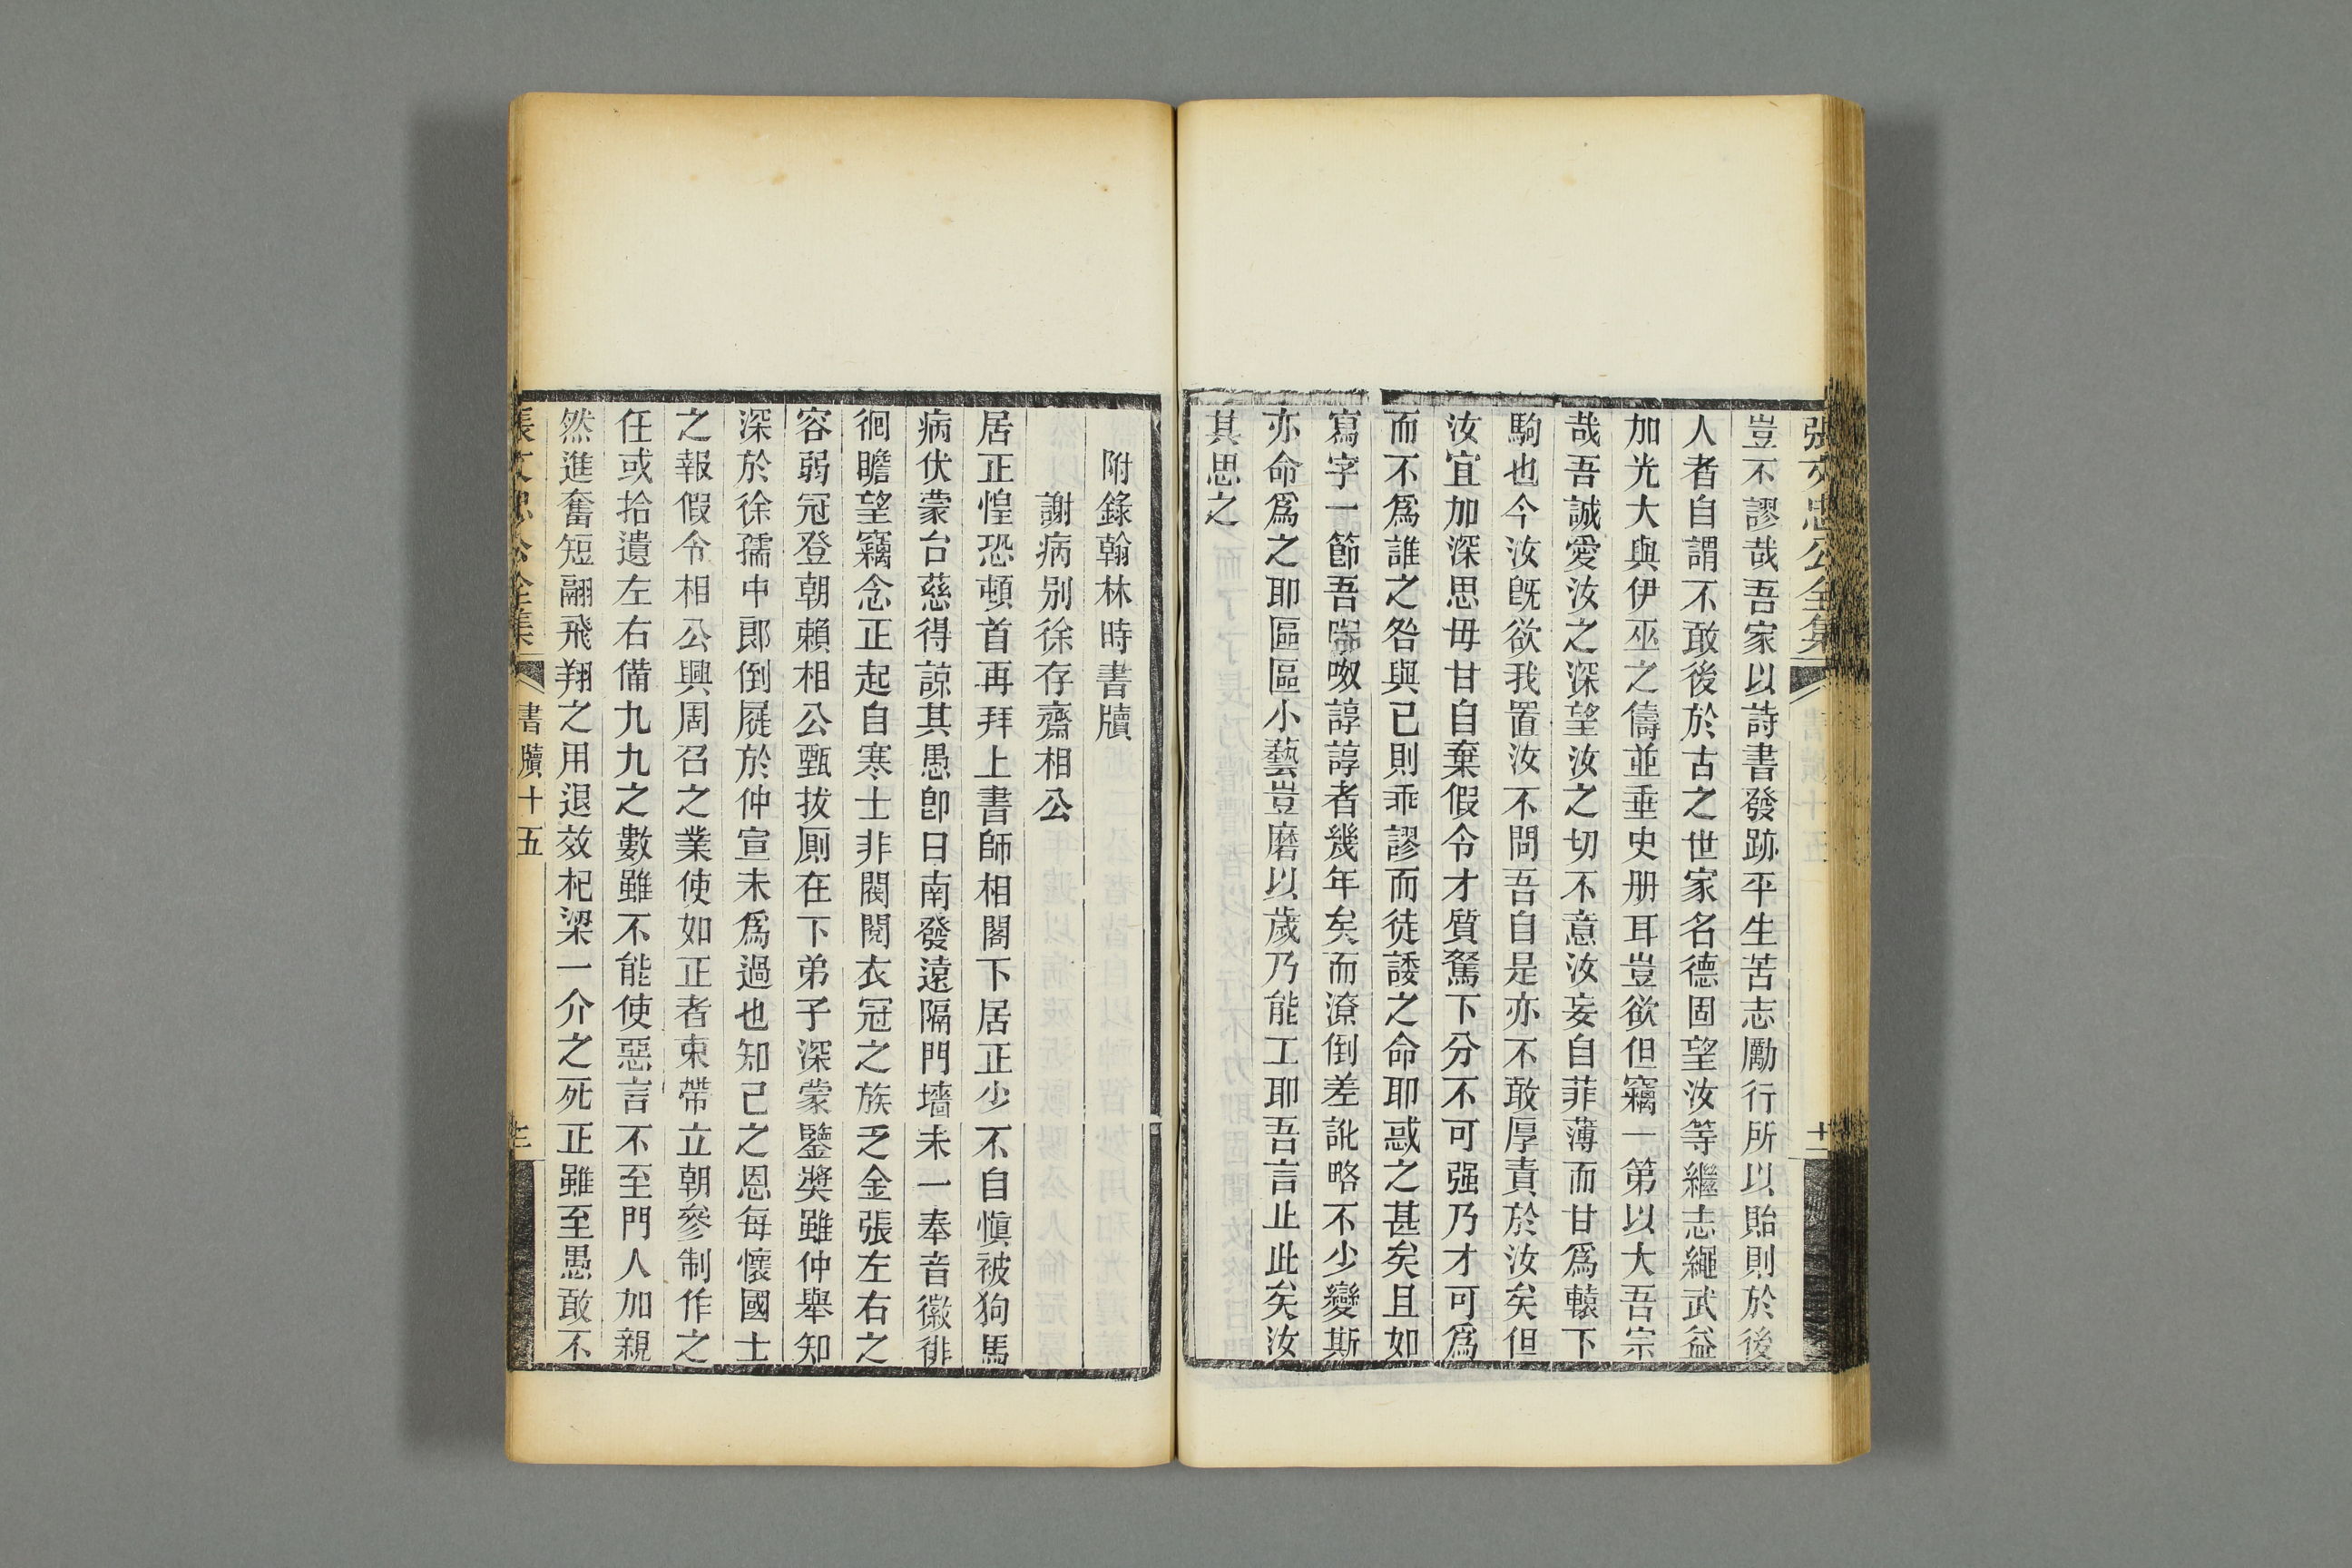 張文忠公全集
十二
豈不謬哉吾家以詩書發跡平生苦志勵行所以貽則於後
人者自謂不敢後於古之世家名德固望汝等繼志繩武益
加光大與伊巫之儔並垂史册耳豈欲但竊一第以大吾宗
哉吾誠愛汝之深望汝之切不意汝妄自菲薄而甘爲轅下
駒也今汝旣欲我置汝不問吾自是亦不敢厚責於汝矣但
汝宜加深思毋甘自棄假令才質駑下分不可强乃才可爲
而不爲誰之咎與已則乖謬而徒諉之命耶惑之甚矣且如
寫字一節吾呶諄諄者幾年矣而潦倒差訛略不少變斯
亦命爲之耶區區小藝豈磨以歲乃能工耶吾言止此矣汝
其思之
附錄翰林時書牘
謝病别徐存齋相公
居正惶恐頓首再拜上書師相閣下居正少不自愼被狗馬
病伏蒙台慈得諒其愚卽日南發遠隔門墻未一奉音徽徘
徊瞻望竊念正起自寒士非閥閱衣冠之族乏金張左右之
容弱冠登朝賴相公甄拔厠在下弟子深蒙鑒奬雖仲舉知
深於徐孺中郎倒屣於仲宣未爲過也知己之恩每懷國士
之報假令相公興周召之業使如正者束帶立朝參制作之
任或拾遺左右備九九之數雖不能使惡言不至門人加親
然進奮短翮飛翔之用退效杞梁一介之死正雖至愚敢不
張文忠公全集
書牘十五